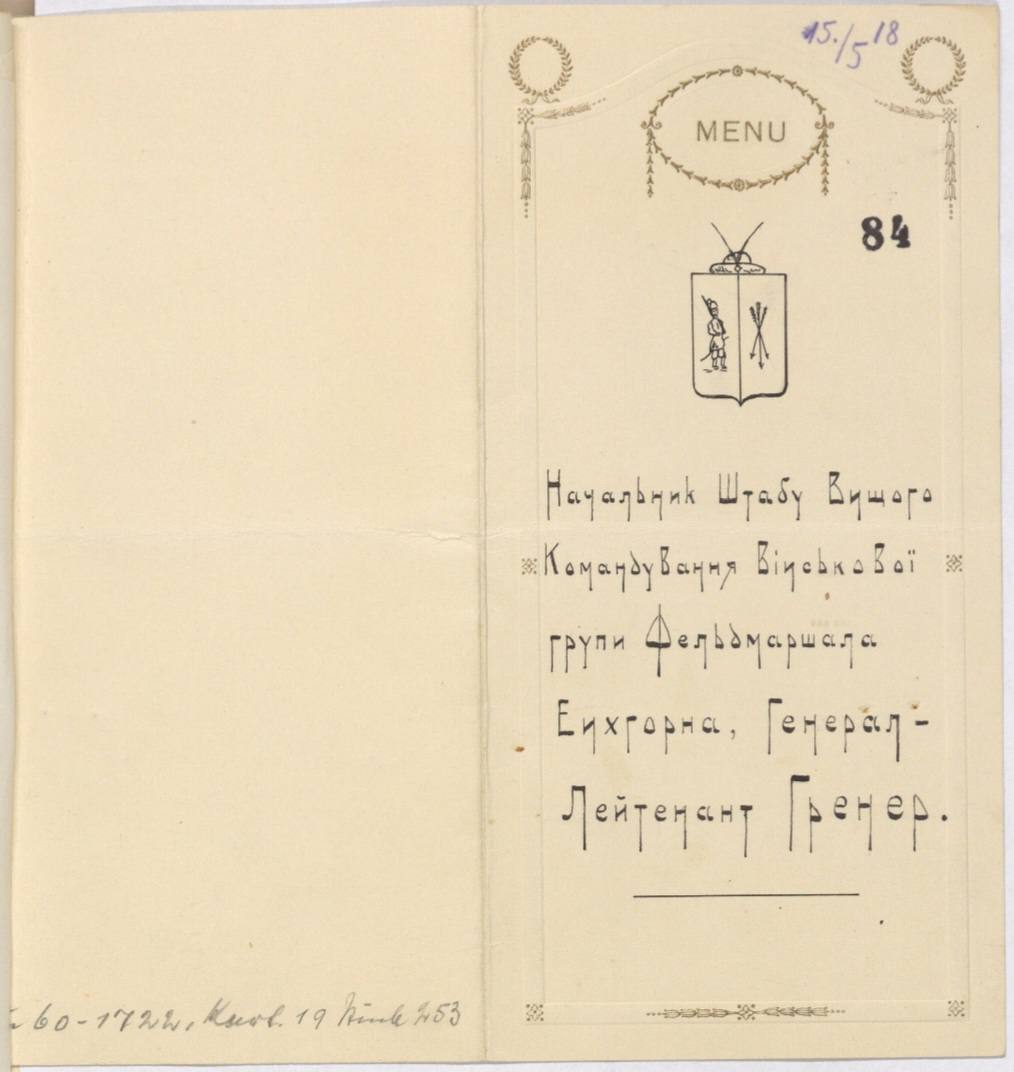 15./5 18
MENU
84
Начальник Штабу Вищого
Командування Військової
групи Фельдмаршала
Ейхгорна, Генерал-
Лейтенант Гренер.
60-1722, 19 253